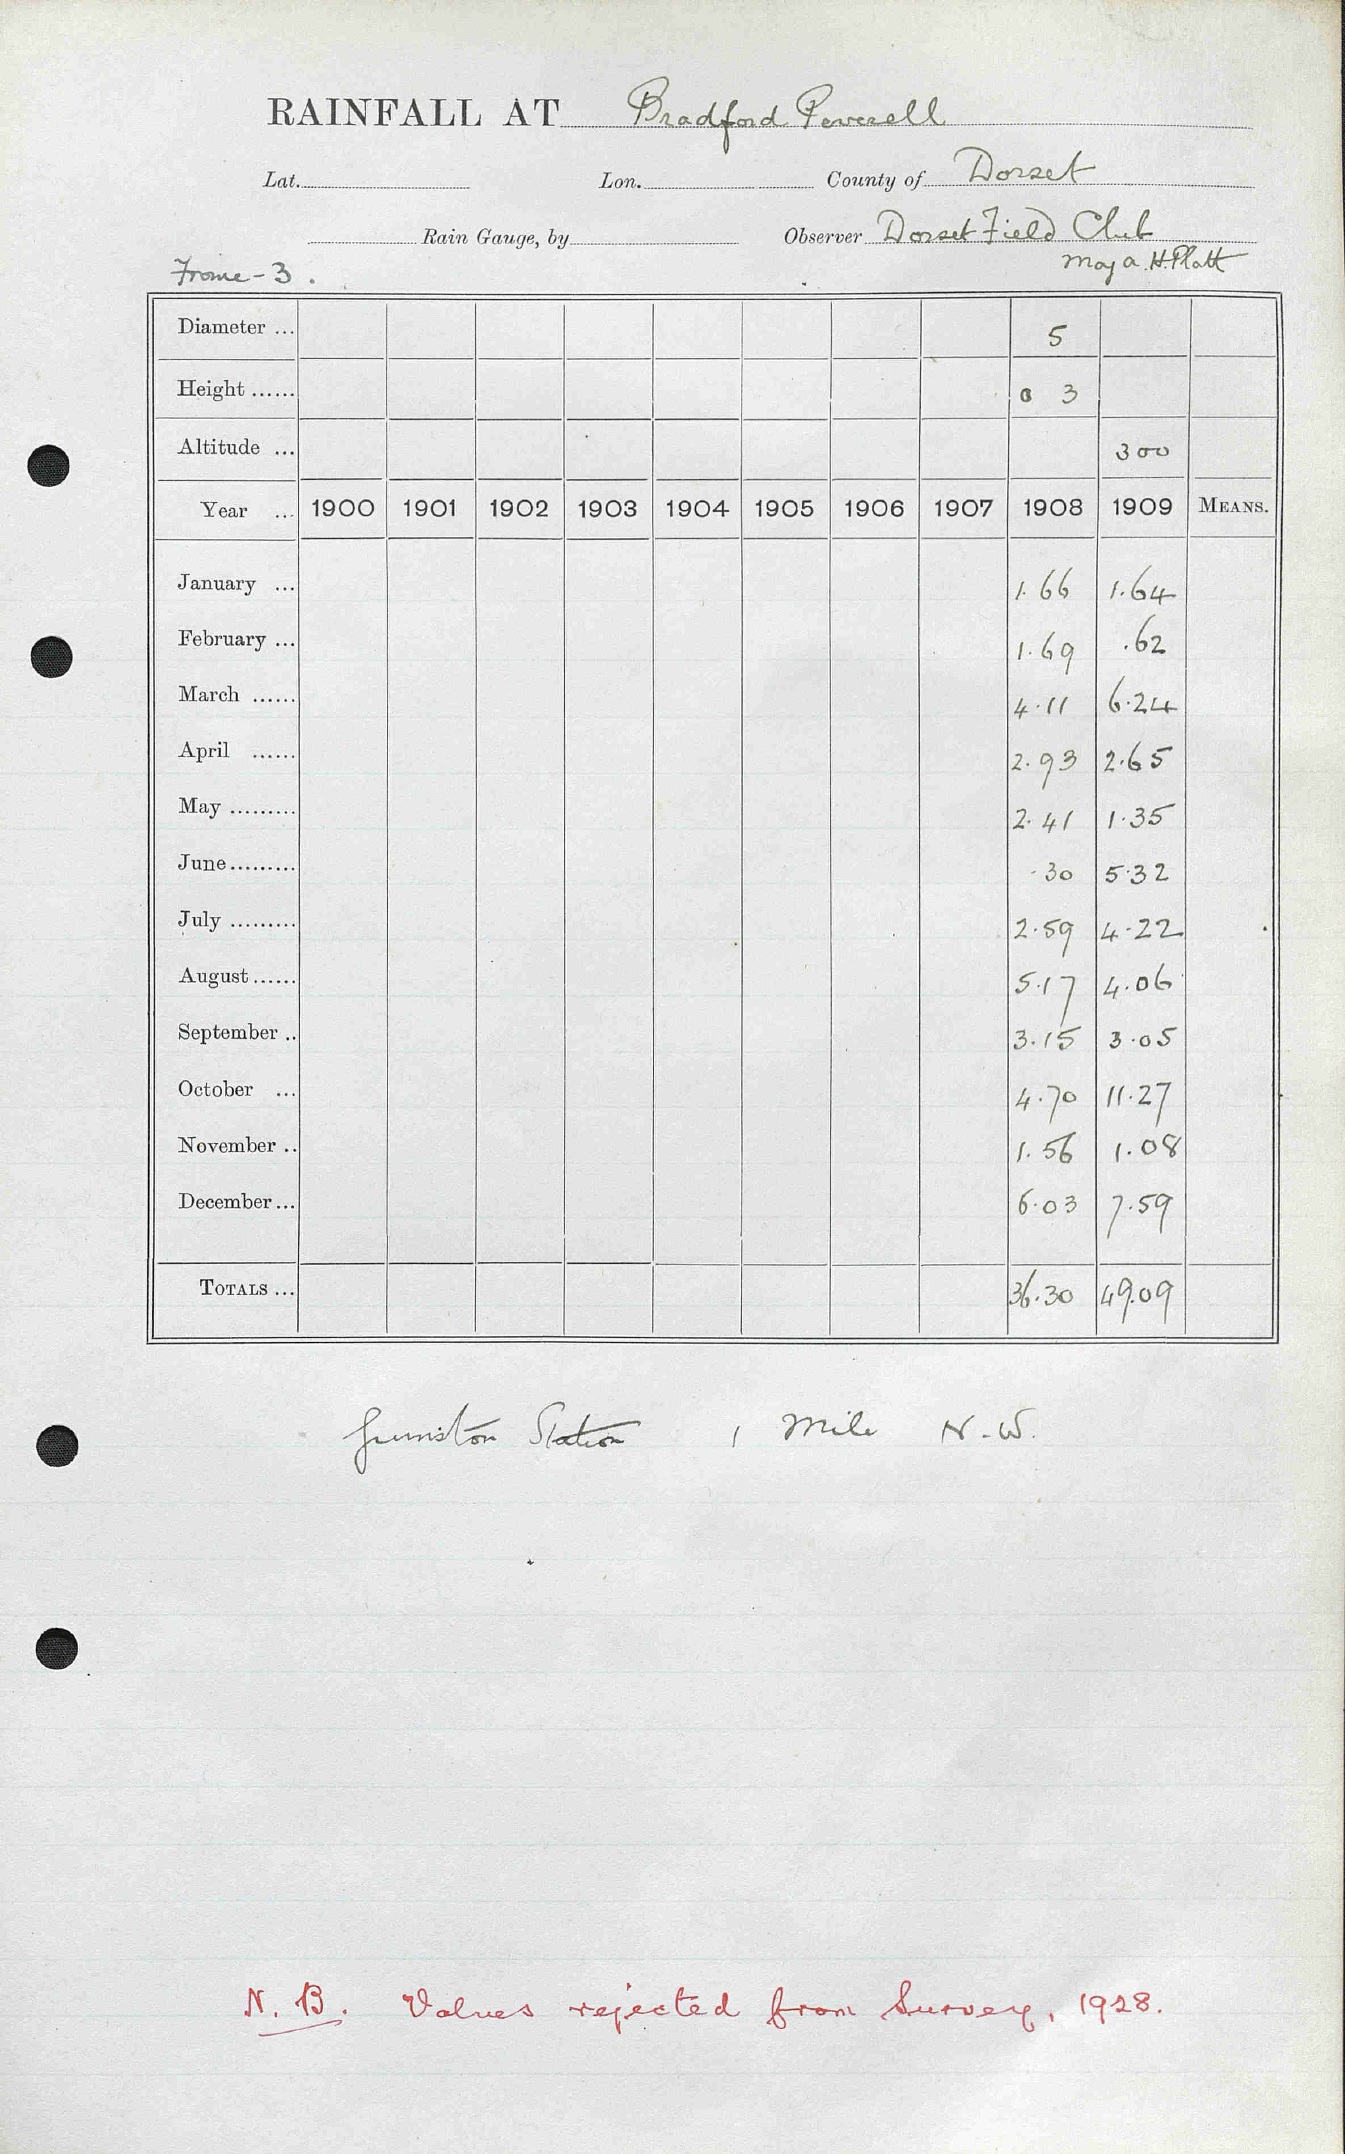 RAINFALL AT Bradford Peverell
Lat. Lon. County of Dorset
Rain Gauge, by Observer Dorset Field Club
Frome - 3. Maj a. H. Platt
Diameter ... 5
Height ...... 0 3
Altitude ... 300
Year ... 1900 1901 1902 1903 1904 1905 1906 1907 1908 1909 MEANS.
January ... 1.66 1.64
February ... 1.69 .62
March ...... 4.11 6.24
April ...... 2.93 2.65
May ......... 2.41 1.35
June......... .30 5.32
July ......... 2.59 4.22
August...... 5.17 4.06
September .. 3.15 3.05
October ... 4.70 11.27
November .. 1.56 1.08
December... 6.03 7.59
TOTALS ... 36.30 49.09
Station 1 Mile N.W.
N.B. Values rejected from Survey, 1928.